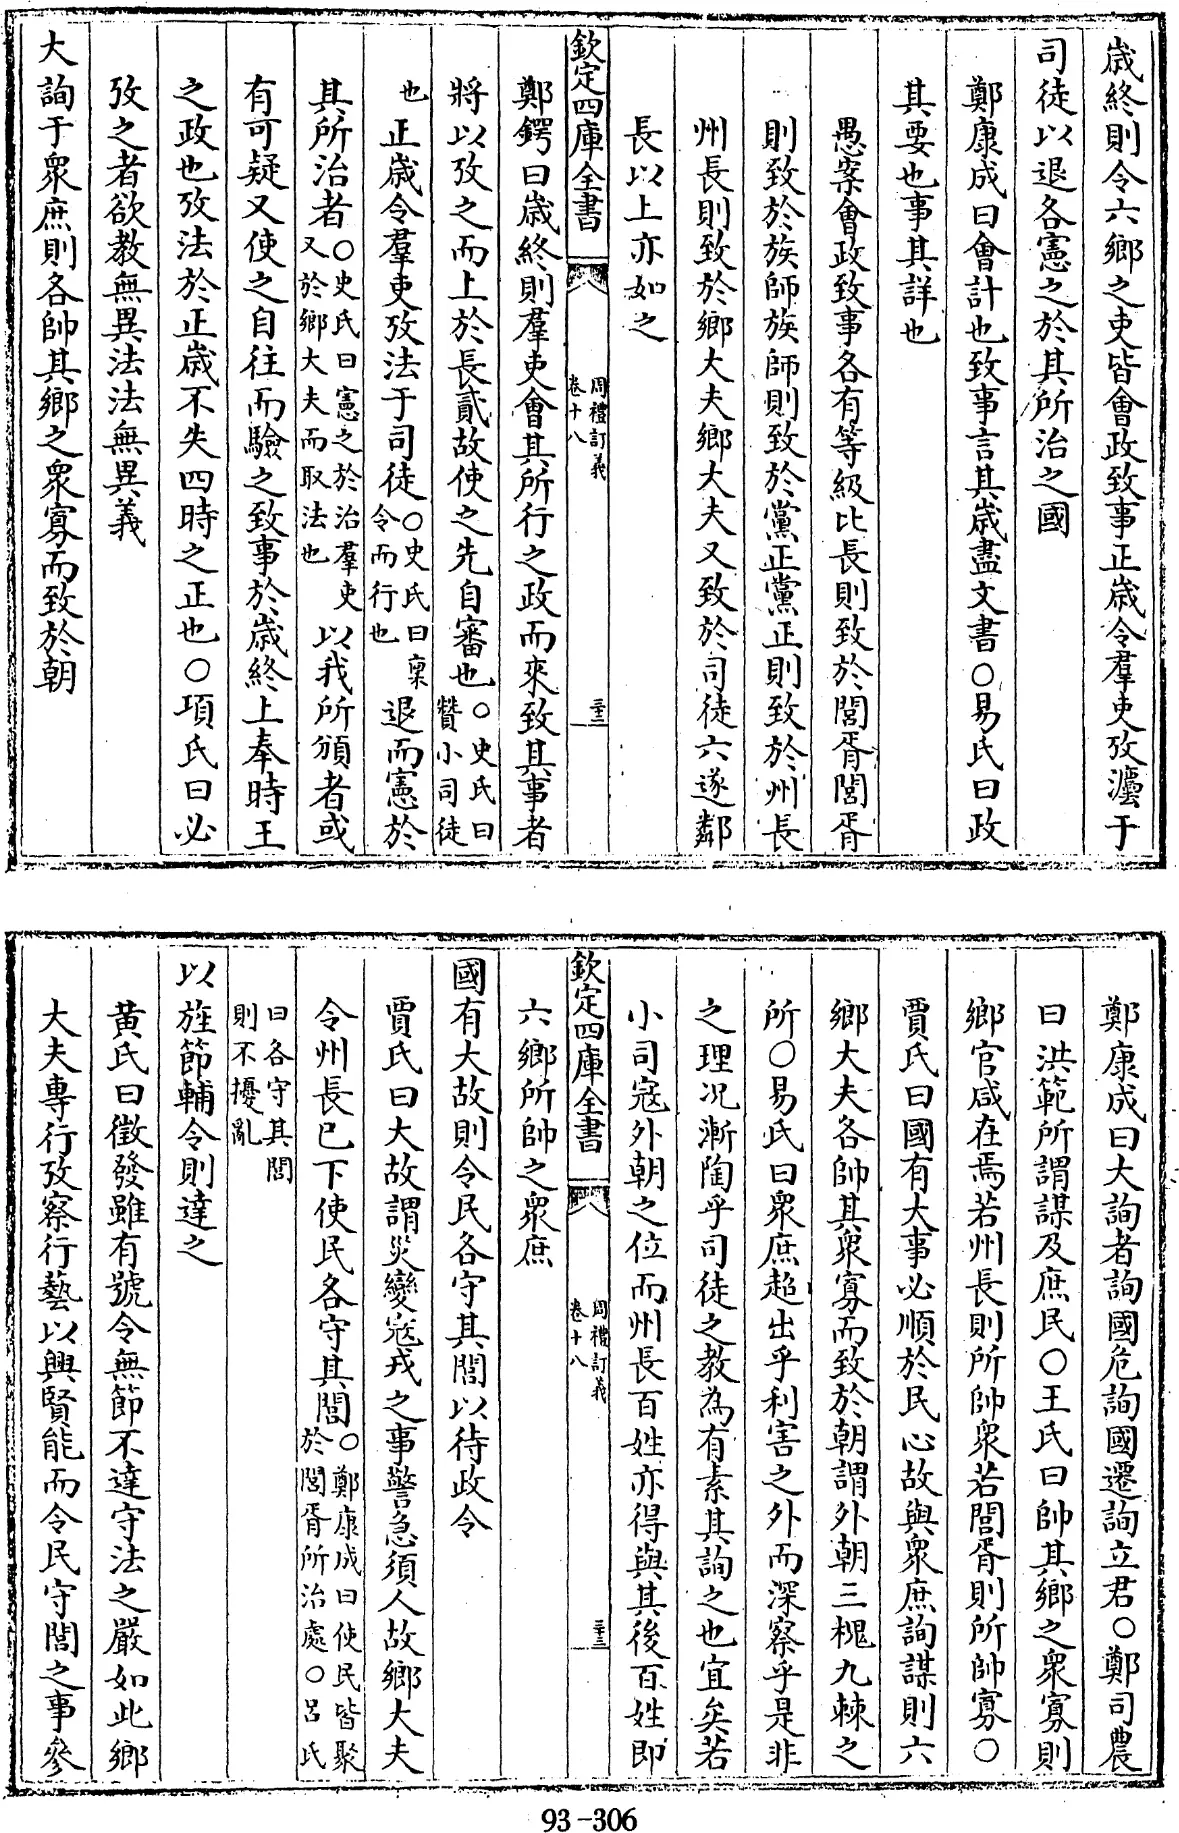 歳終則令六鄉之吏皆會政致事正歳令羣吏攷灋于
司徒以退各憲之於其所治之國
鄭康成曰會計也致事言其歳盡文書○易氏曰政
其要也事其詳也
愚案會政致事各有等級比長則致於閭胥閭胥
則致於族師族師則致於黨正黨正則致於州長
州長則致於鄉大夫鄉大夫又致於司徒六遂鄰
長以上亦如之
欽定四庫全書
周禮訂義
卷十八
三十二
鄭鍔曰歳終則羣吏會其所行之政而來致其事者
將以攷之而上於長貳故使之先自審也○史氏曰
贊小司徒
也正歳令羣吏攷法于司徒○史氏曰稟
令而行也
退而憲於
其所治者○史氏曰憲之於治羣吏
又於鄉大夫而取法也
以我所頒者或
有可疑又使之自往而驗之致事於歳終上奉時王
之政也攷法於正歳不失四時之正也○項氏曰必
攷之者欲教無異法法無異義
大詢于衆庶則各帥其鄉之衆寡而致於朝
鄭康成曰大詢者詢國危詢國遷詢立君○鄭司農
曰洪範所謂謀及庶民○王氏曰帥其鄉之衆寡則
鄉官咸在焉若州長則所帥衆若閭胥則所帥寡○
賈氏曰國有大事必順於民心故與衆庶詢謀則六
鄉大夫各帥其衆寡而致於朝謂外朝三槐九棘之
所○易氏曰衆庶超出乎利害之外而深察乎是非
之理况漸陶乎司徒之教為有素其詢之也宜矣若
小司寇外朝之位而州長百姓亦得與其後百姓即
欽定四庫全書
周禮訂義
卷十八
三十三
六鄉所帥之衆庶
國有大故則令民各守其閭以待政令
賈氏曰大故謂災變寇戎之事警急須人故鄉大夫
令州長已下使民各守其閭○鄭康成曰使民皆聚
於閭胥所治處○呂氏
曰各守其閭
則不擾亂
以旌節輔令則達之
黄氏曰徵發雖有號令無節不達守法之嚴如此鄉
大夫專行攷察行藝以興賢能而令民守閭之事參
93-306